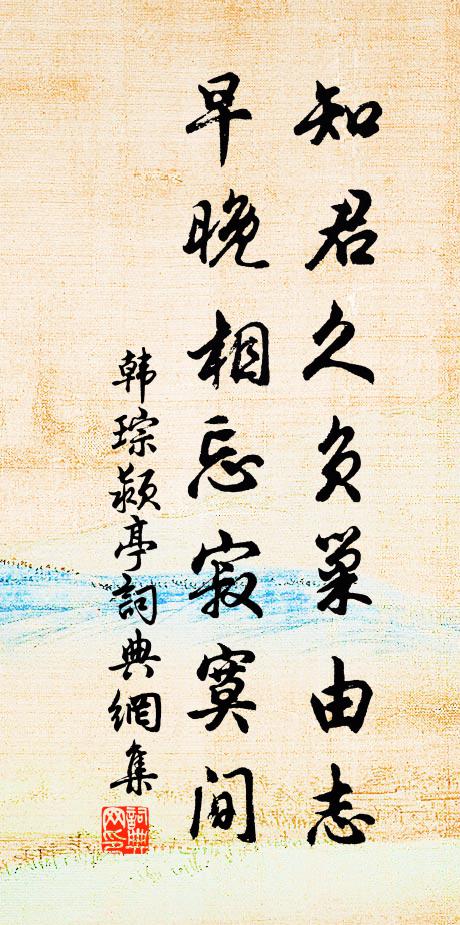 知君久负巢由志
早晚相忘寂寞间
韩琮颍亭詞典網集
詞典网印